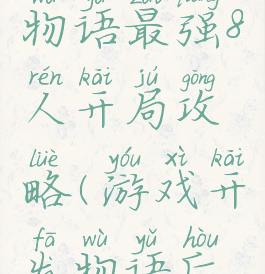 物语最强8
rén kāi jú gōng
人开局攻
lüè yóu xì kāi
略(游戏开
fā wù yǔ hòu
发物语后